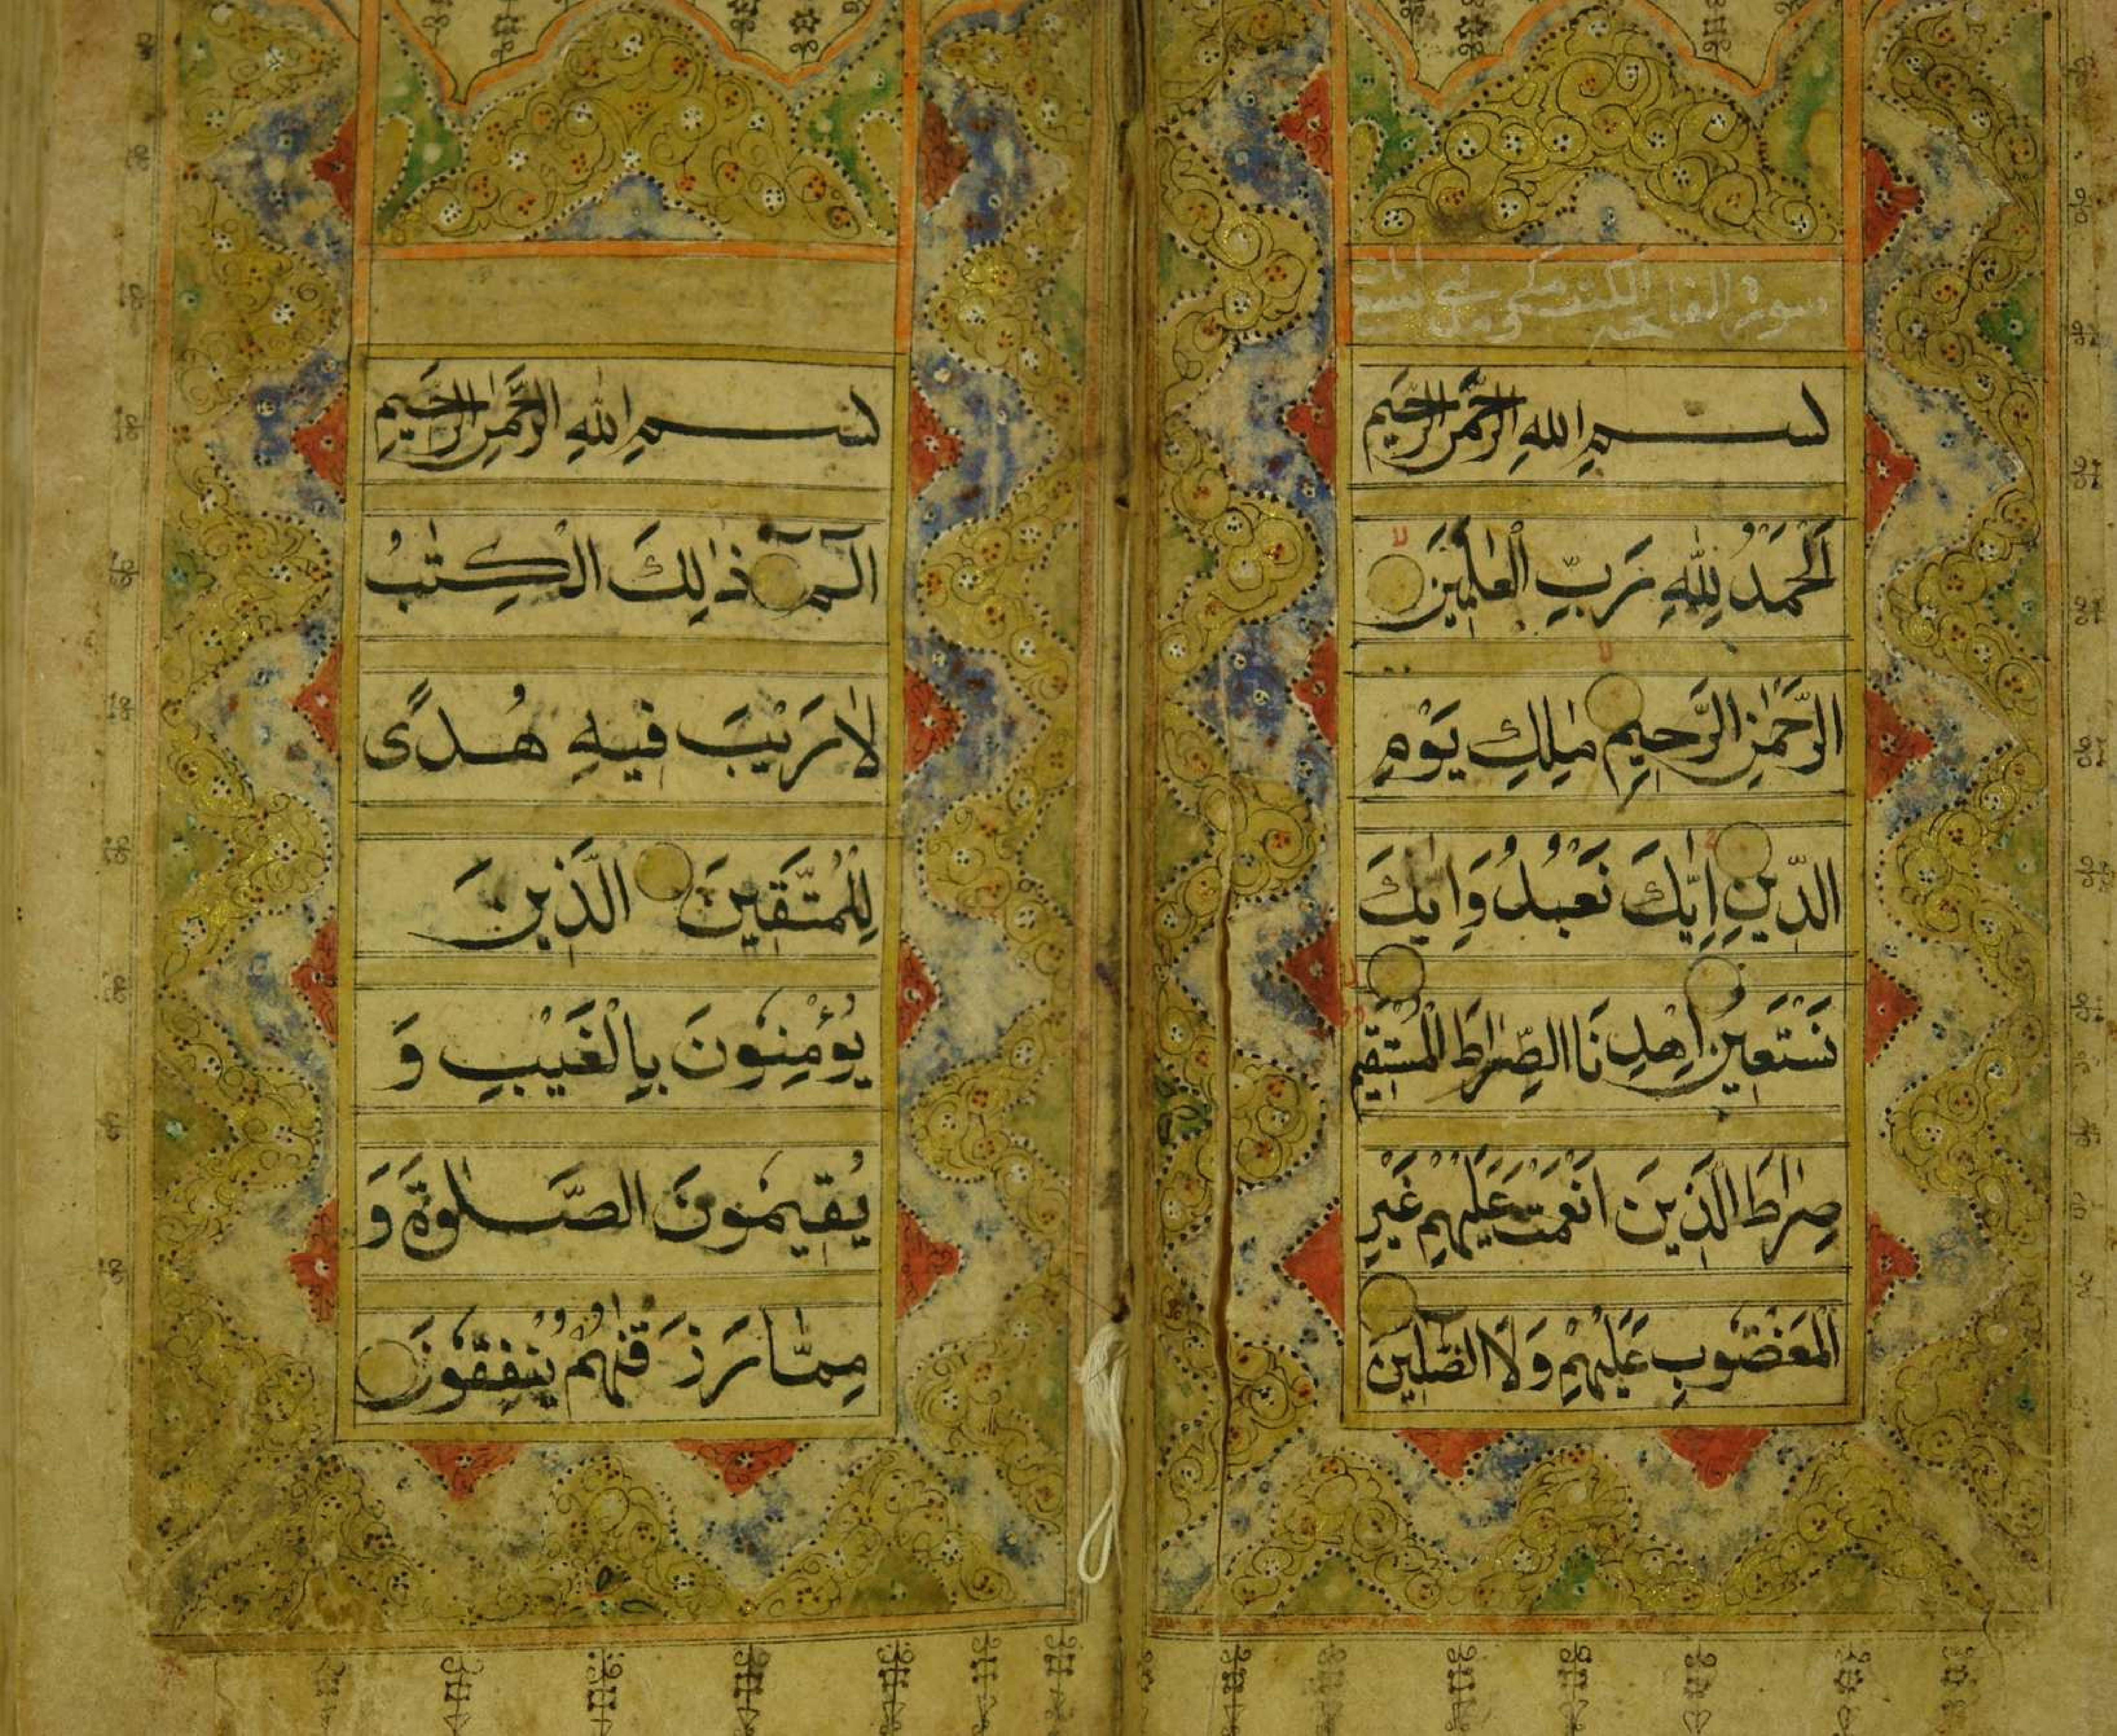 سورة الفاتحة الكتب مكي وهي سبع ايات
بسم الله الرحمن الرحيم
اَلْحَمْدُ لِلّٰهِ رَبِّ الْعٰلَمِيْنَ
الرَّحْمٰنِ الرَّحِيْمِ مٰلِكِ يَوْمِ
الدِّيْنِ اِيَّاكَ نَعْبُدُ وَاِيَّاكَ
نَسْتَعِيْنُ اِهْدِنَا الصِّرٰطَ الْمُسْتَقِيْمَ
صِرٰطَ الَّذِيْنَ اَنْعَمْتَ عَلَيْهِمْ غَيْرِ
الْمَغْضُوْبِ عَلَيْهِمْ وَلَا الضَّالِّيْنَ
بسم الله الرحمن الرحيم
الٓمٓ ذٰلِكَ الْكِتٰبُ
لَا رَيْبَ فِيْهِ هُدًى
لِلْمُتَّقِيْنَ الَّذِيْنَ
يُؤْمِنُوْنَ بِالْغَيْبِ وَ
يُقِيْمُوْنَ الصَّلٰوةَ وَ
مِمَّا رَزَقْنٰهُمْ يُنْفِقُوْنَ